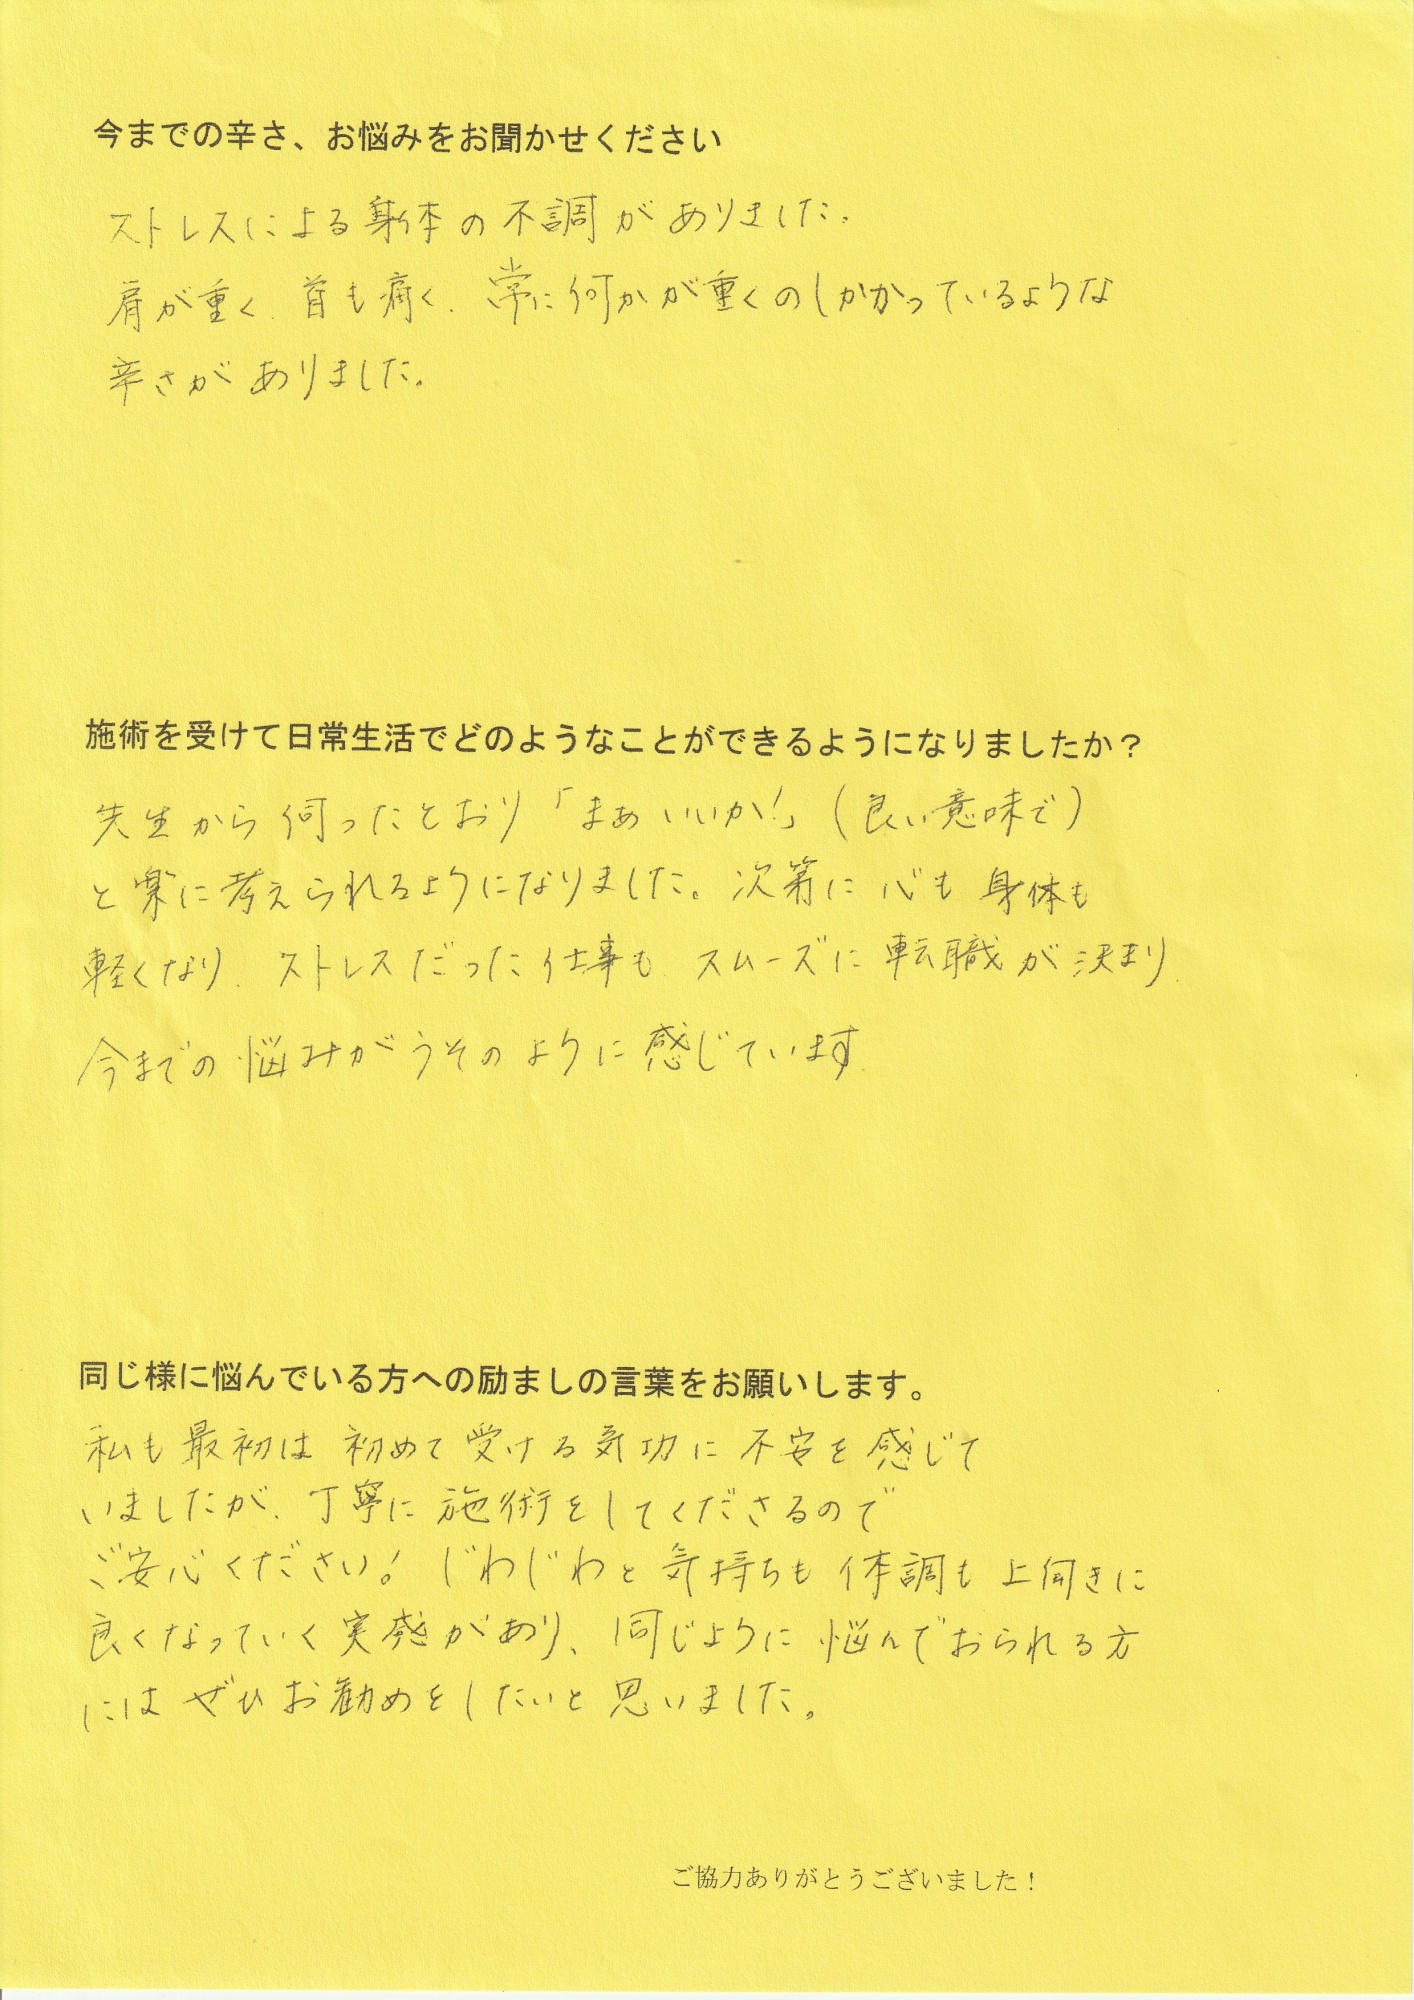 今までの辛さ、お悩みをお聞かせください
ストレスによる身体の不調がありました。
肩が重く、首も痛く、常に何かが重くのしかかっているような
辛さがありました。
施術を受けて日常生活でどのようなことができるようになりましたか？
先生から伺ったとおり「まぁいいか!」(良い意味で)
と楽に考えられるようになりました。次第に心も身体も
軽くなり、ストレスだった仕事も、スムーズに転職が決まり、
今までの悩みがうそのように感じています。
同じ様に悩んでいる方への励ましの言葉をお願いします。
私も最初は初めて受ける気功に不安を感じて
いましたが、丁寧に施術をしてくださるので
ご安心ください! じわじわと気持ちも体調も上向きに
良くなっていく実感があり、同じように悩んでおられる方
にはぜひお勧めをしたいと思いました。
ご協力ありがとうございました！